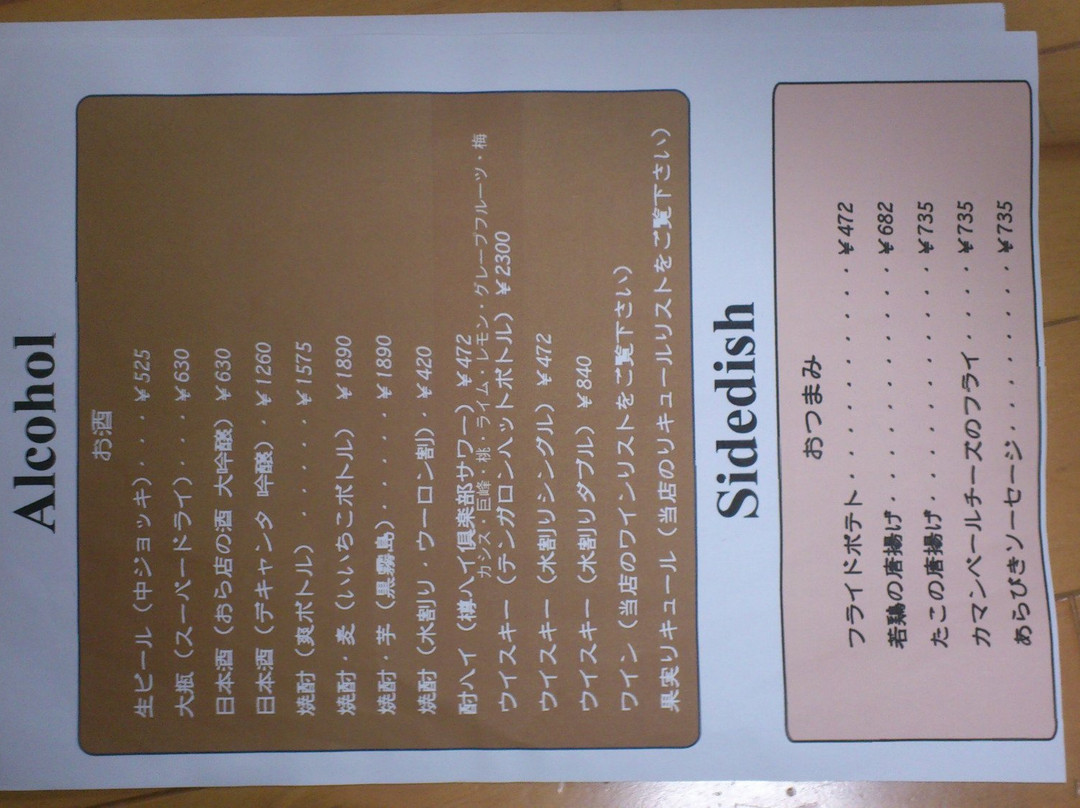 Alcohol
お酒
生ビール（中ジョッキ）．．．．￥525
大瓶（スーパードライ）．．．．￥630
日本酒（おら店の酒 大吟醸）￥630
日本酒（デキャンタ 吟醸）．￥1260
焼酎（爽ボトル）．．．．．．￥1575
焼酎・麦（いいちこボトル）．￥1890
焼酎・芋（黒霧島）．．．．．￥1890
焼酎（水割り・ウーロン割）．￥420
酎ハイ（樽ハイ倶楽部サワー）￥472
カシス・巨峰・桃・ライム・レモン・グレープフルーツ・梅
ウイスキー（テンガロンハットボトル）￥2300
ウイスキー（水割りシングル）￥472
ウイスキー（水割りダブル）￥840
ワイン（当店のワインリストをご覧下さい）
果実リキュール（当店のリキュールリストをご覧下さい）
Sidedish
おつまみ
フライドポテト．．．．．．．．．．．￥472
若鶏の唐揚げ．．．．．．．．．．．．￥682
たこの唐揚げ．．．．．．．．．．．．￥735
カマンベールチーズのフライ．．．．￥735
あらびきソーセージ．．．．．．．．．￥735